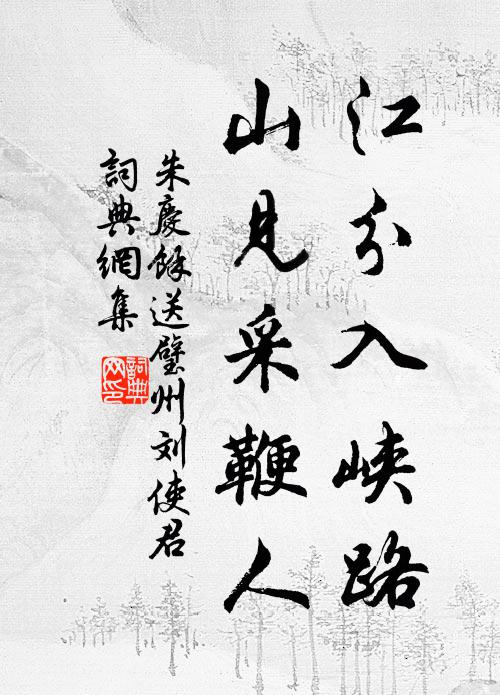 江分入峡路
山見采鞭人
朱慶餘送璧州刘使君
詞典網集
詞典網印